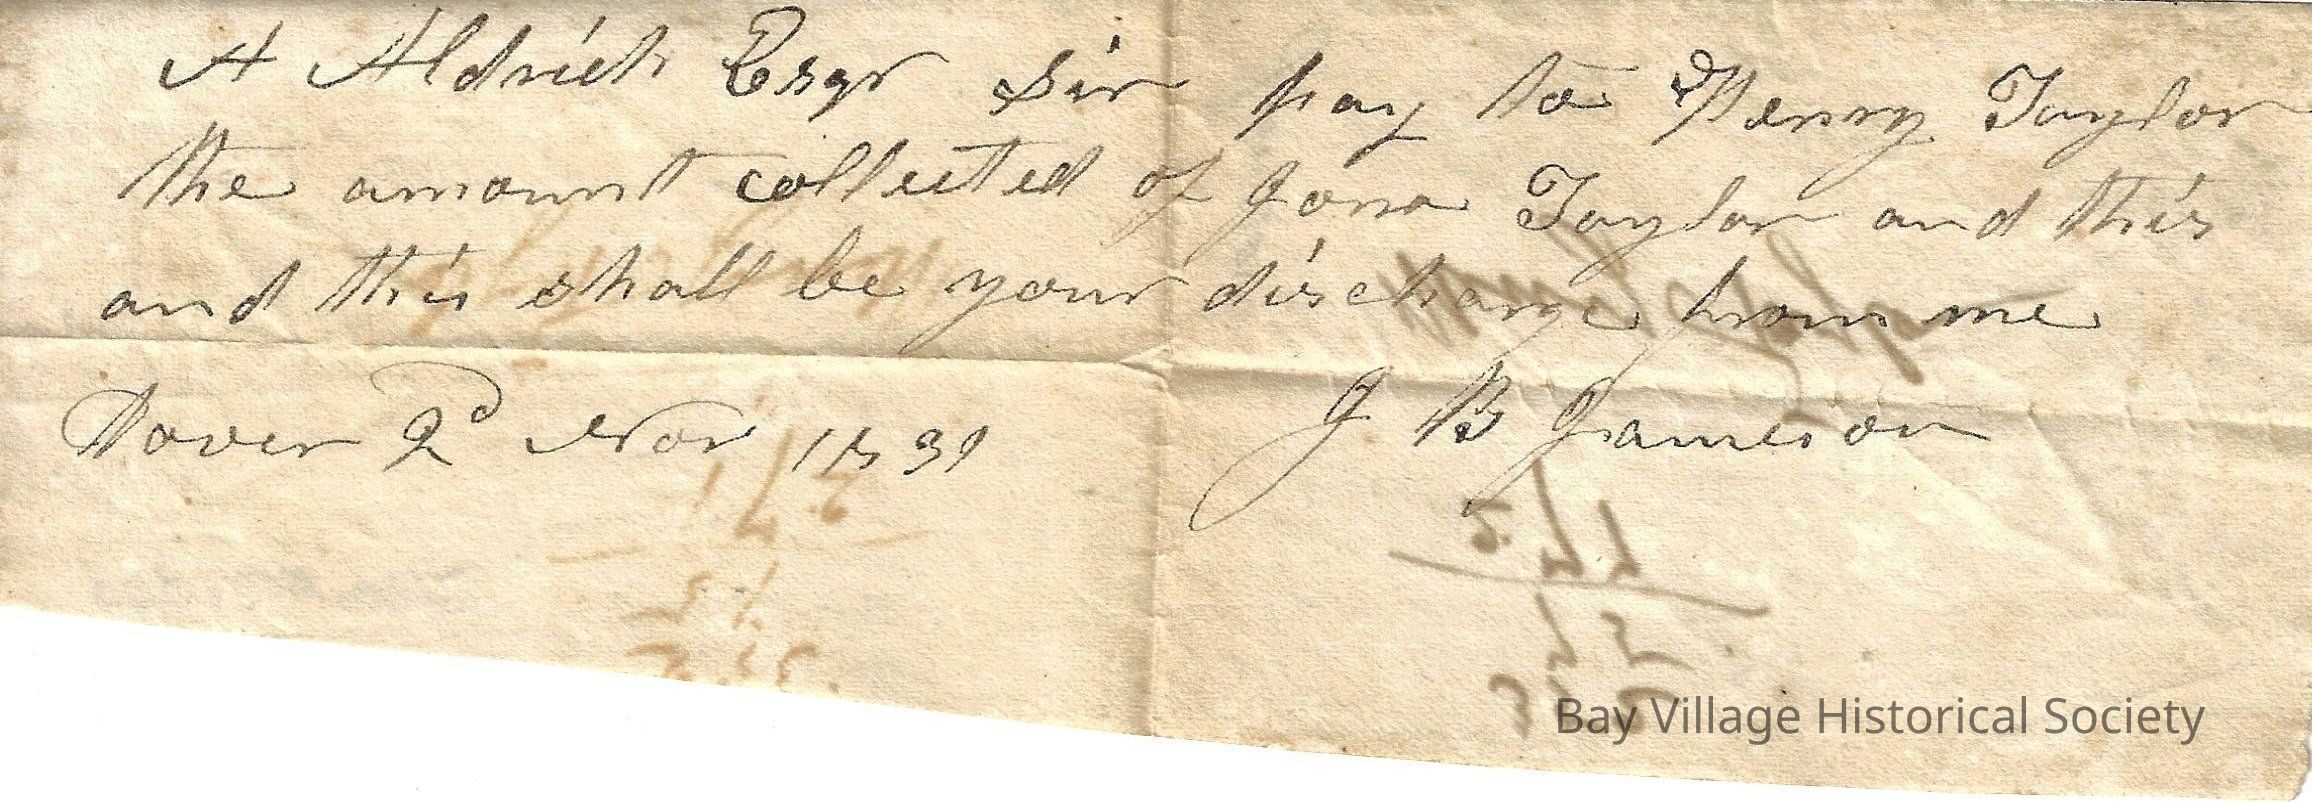 A Aldrich Esqr Sir pay to Henry Taylor
the amount collected of Jona Taylor and this
and this shall be your discharge from me
Dover 2d Nov 1831
J B Jameson
Bay Village Historical Society